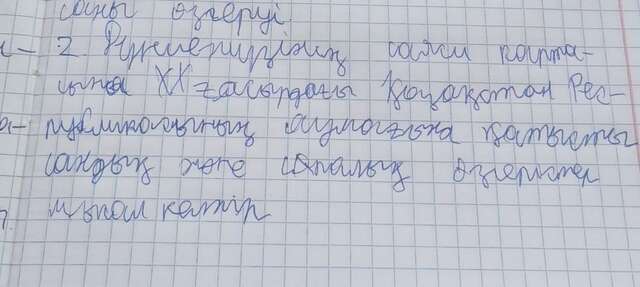 саны өзгеруі
2. Дүниежүзінің саяси карта-
сына XX ғасырдағы Қазақстан Рес-
публикасының аумағына қатысты
сандық және сапалық өзгерістер
мысал келтір